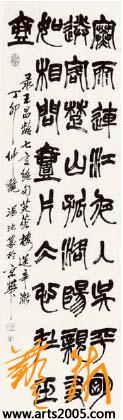 寒雨連江夜入吳平明
送客楚山孤洛陽親友
如相問壹片冰心在玉
壺
录王昌齡七言絕句芙蓉樓送辛漸
丁卯仙
www.arts2005.com